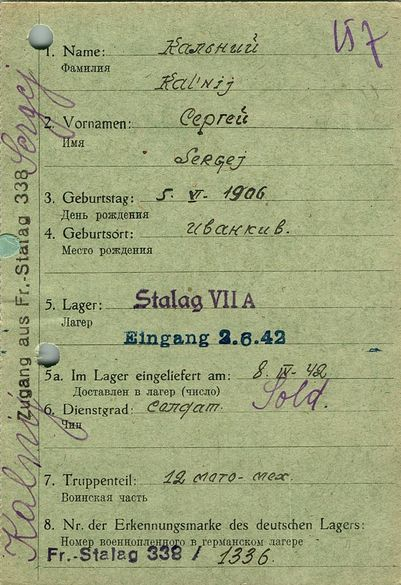 Kalnij Sergej
Zugang aus Fr.-Stalag 338
1. Name: Кальний
Фамилия
Kal'nij
2. Vornamen: Сергей
Имя
Sergej
3. Geburtstag: 5. VI - 1906
День рождения
4. Geburtsort: Иванкив.
Место рождения
5. Lager: Stalag VII A
Лагер
Eingang 2.6.42
5a. Im Lager eingeliefert am: 8. IV - 42
Доставлен в лагер (число)
6. Dienstgrad: солдат. Sold.
Чин
7. Truppenteil: 12 мото-мех.
Воинская часть
8. Nr. der Erkennungsmarke des deutschen Lagers:
Номер военнопленного в германском лагере
Fr.-Stalag 338 / 1336.